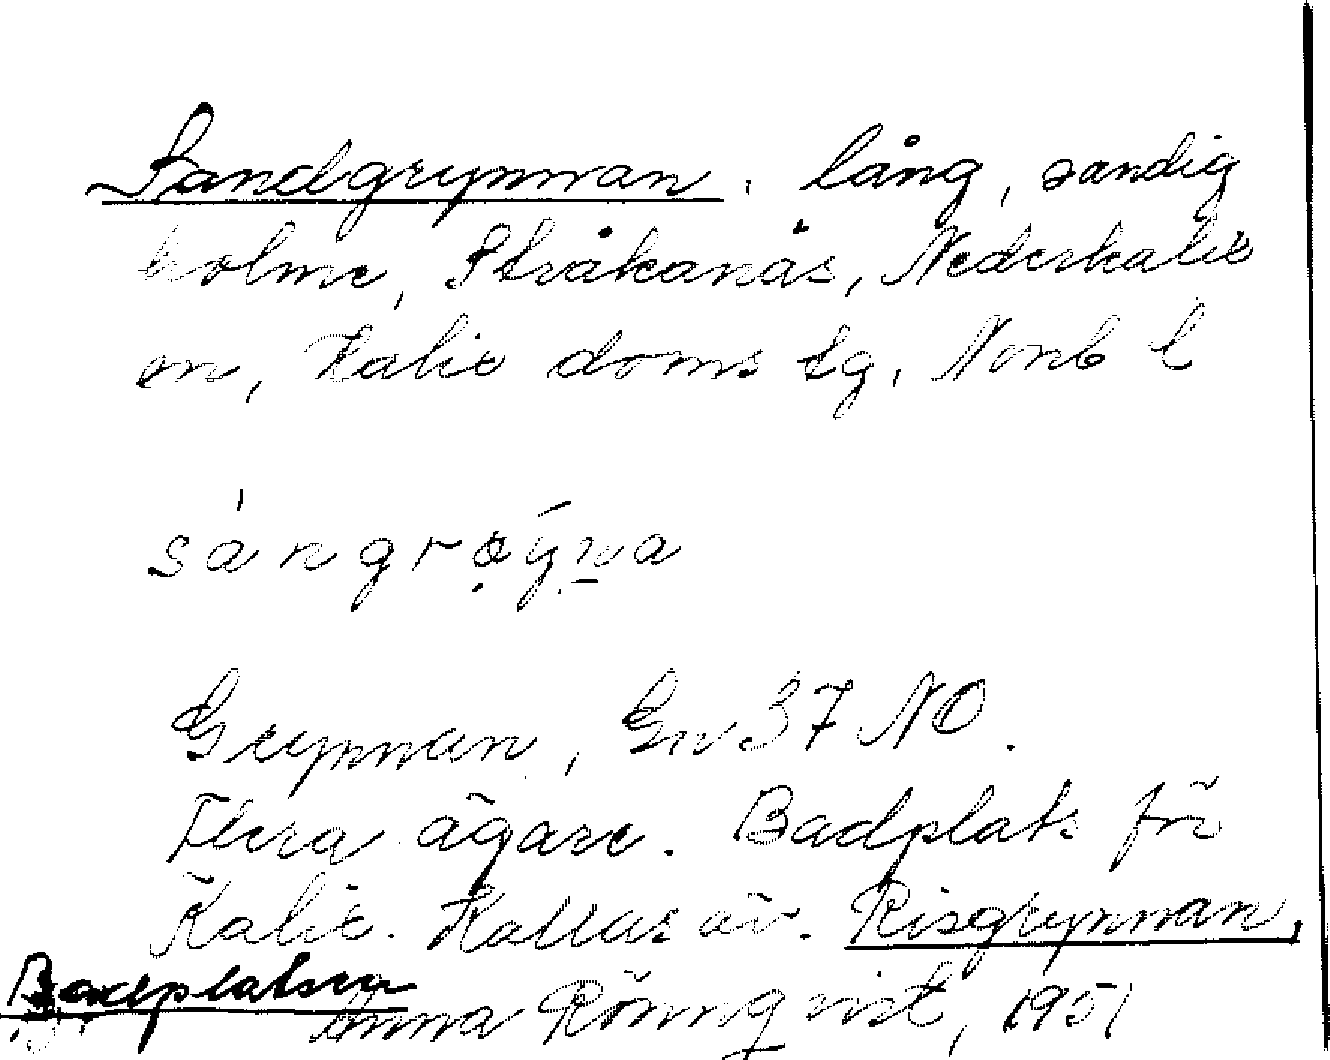 Sandgrynnan, lång, sandig
holme, Stråkanäs, Nederkalix
sn, Kalix doms tg, Nonb l
sángrøýna
Grynnan, Gn 37 NO.
Flera ägare. Badplats för
Kalix. Kallas äv. Risgrynnan,
Badplatsen
Anna Rönnqvist, 1951